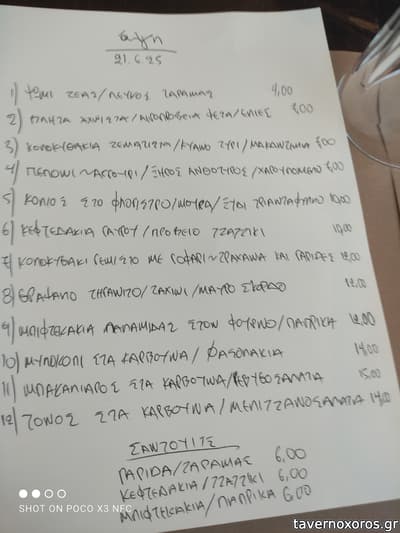 21.6.25
1) ΨΩΜΙ ΖΕΑΣ/ΛΕΥΚΟΣ ΤΑΡΑΜΑΣ 4,00
2) ΧΛΩΡΙΣΤΑ/ΑΙΓΟΠΡΟΒΕΙΑ ΦΕΤΑ/ΕΛΙΕΣ 8,00
3) ΚΟΛΟΚΥΘΑΚΙΑ ΖΕΜΑΤΙΣΤΑ/ΚΥΑΝΟ ΤΥΡΙ/ΜΑΚΑΝΤΑΜΙΑ 8,00
4) ΠΕΠΟΝΙ~ΑΓΓΟΥΡΙ/ΞΗΡΟΣ ΑΝΘΟΤΥΡΟΣ/ΧΑΡΟΥΠΟΜΕΛΟ 8,00
5) ΚΟΛΙΟΣ ΣΤΟ ΦΛΟΓΙΣΤΡΟ/ΜΟΥΡΑ/ΞΥΔΙ ΤΡΙΑΝΤΑΦΥΛΛΟ 10,00
6) ΚΕΦΤΕΔΑΚΙΑ ΓΑΥΡΟΥ/ΠΡΟΒΕΙΟ ΤΖΑΤΖΙΚΙ 10,00
7) ΚΟΛΟΚΥΘΑΚΙ ΓΕΜΙΣΤΟ ΜΕ ΡΟΦΑΡΙ~ΤΡΑΧΑΝΑ ΚΑΙ ΓΑΡΙΔΕΣ 12,00
8) ΘΡΑΨΑΛΟ ΤΗΓΑΝΙΤΟ/ΤΑΧΙΝΙ/ΜΑΥΡΟ ΣΚΟΡΔΟ 12,00
9) ΜΠΙΦΤΕΚΑΚΙΑ ΠΑΛΑΜΙΔΑΣ ΣΤΟΝ ΦΟΥΡΝΟ/ΠΑΠΡΙΚΑ 12,00
10) ΜΥΛΟΚΟΠΙ ΣΤΑ ΚΑΡΒΟΥΝΑ/ΦΑΣΟΛΑΚΙΑ 14,00
11) ΜΠΑΚΑΛΙΑΡΟΣ ΣΤΑ ΚΑΡΒΟΥΝΑ/ΡΕΒΥΘΟΣΑΛΑΤΑ 15,00
12) ΤΟΝΟΣ ΣΤΑ ΚΑΡΒΟΥΝΑ/ΜΕΛΙΤΖΑΝΟΣΑΛΑΤΑ 14,00
ΣΑΝΤΟΥΙΤΣ
ΓΑΡΙΔΑ/ΤΑΡΑΜΑΣ 6,00
ΚΕΦΤΕΔΑΚΙΑ/ΤΖΑΤΖΙΚΙ 6,00
ΜΠΙΦΤΕΚΑΚΙΑ/ΠΑΠΡΙΚΑ 6,00
SHOT ON POCO X3 NFC
tavernoxoros.gr